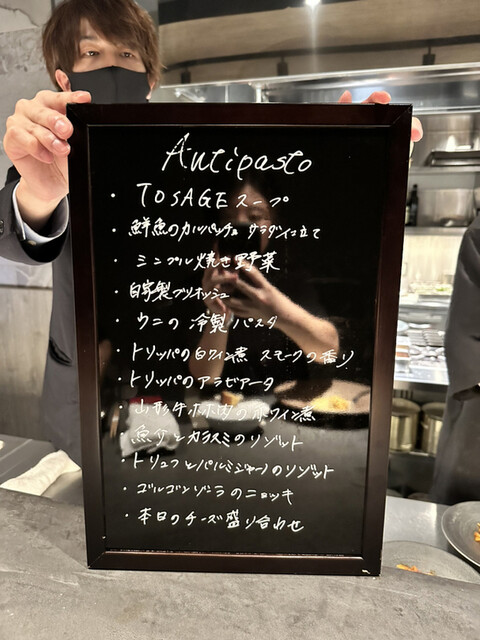 Antipasto
・TOSAGEスープ
・鮮魚のカルパッチョ サラダ仕立て
・シンプル焼き野菜
・自家製ブリオッシュ
・ウニの冷製パスタ
・トリッパの白ワイン煮 スモークの香り
・トリッパのアラビアータ
・山形牛ホホ肉の赤ワイン煮
・魚介とカラスミのリゾット
・トリュフとパルミジャーノのリゾット
・ゴルゴンゾーラのニョッキ
・本日のチーズ盛り合わせ